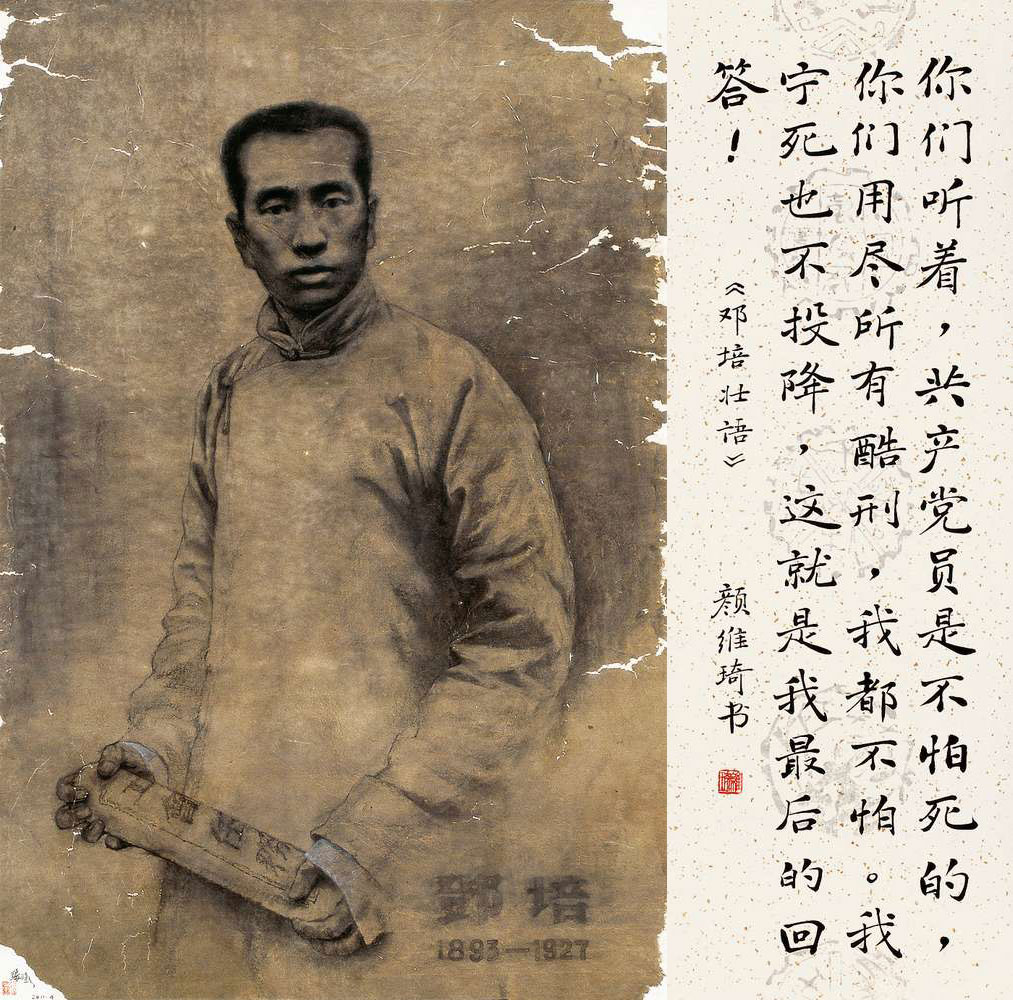 你们听着，共产党员是不怕死的，
你们用尽所有酷刑，我都不怕。我
宁死也不投降，这就是我最后的回
答！
《邓培壮语》
颜维琦书
鄧培
1893—1927